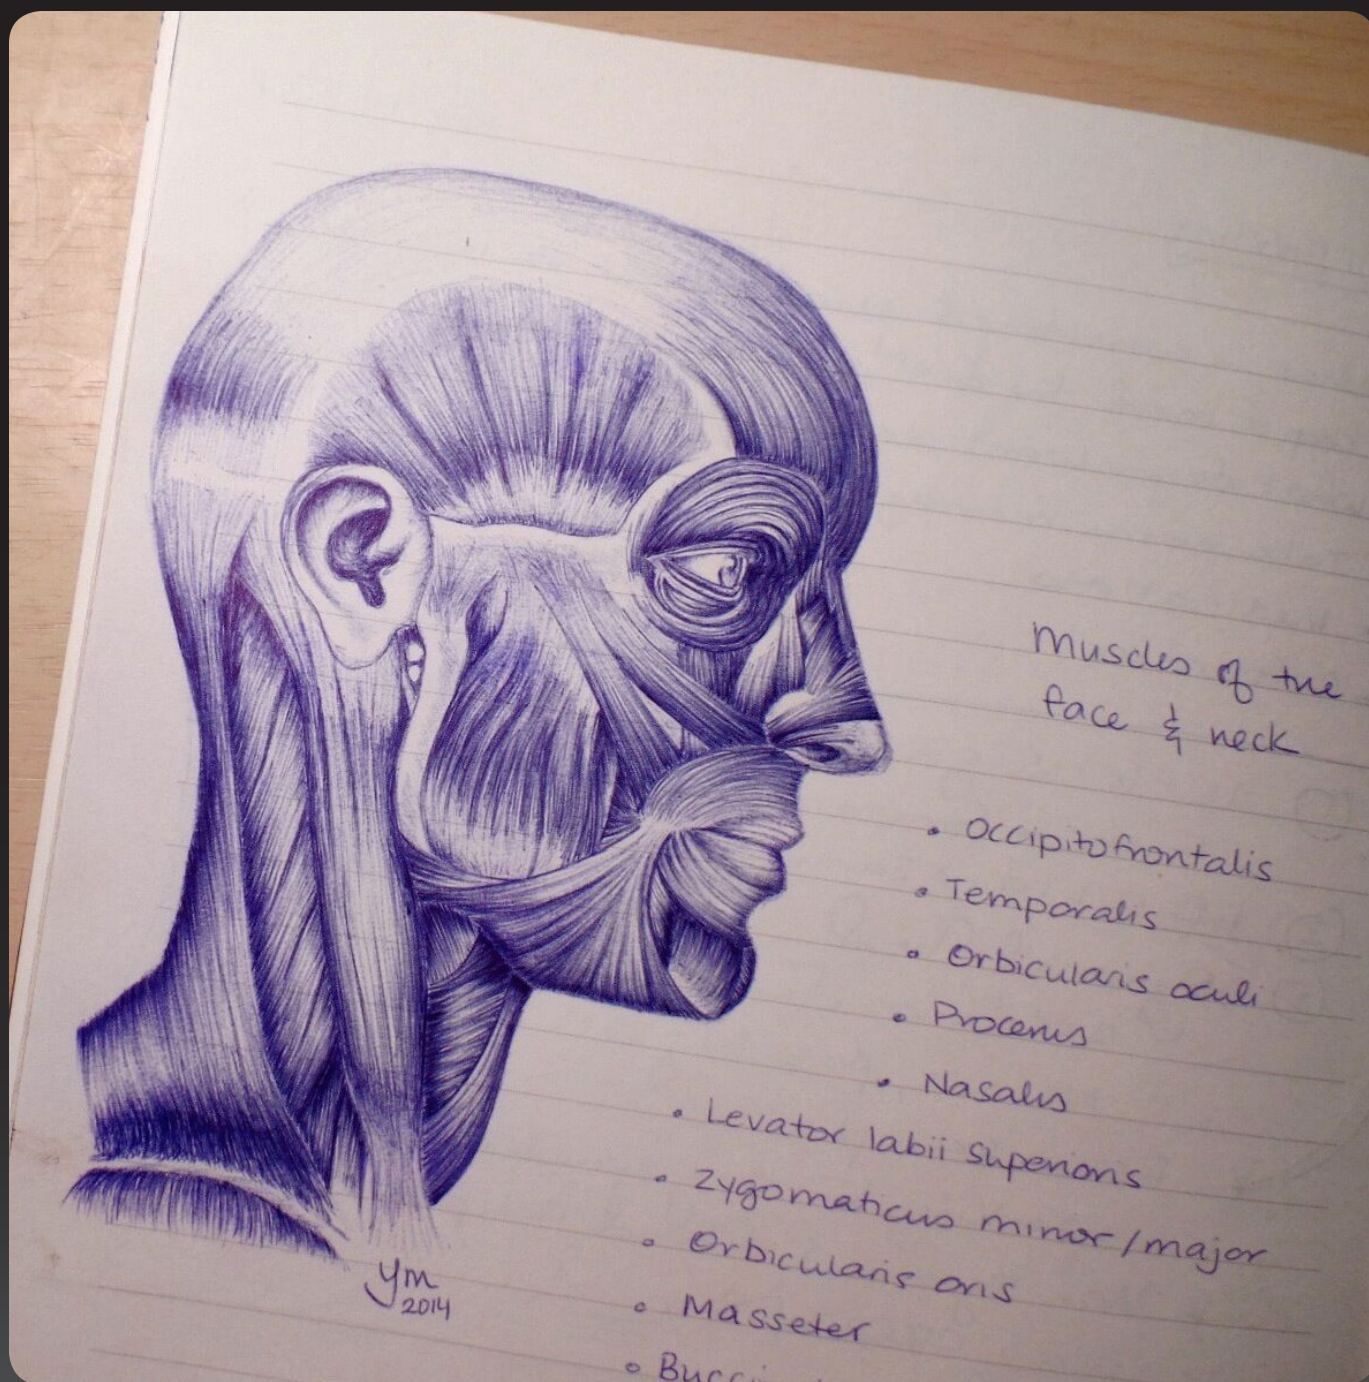 Muscles of the
face & neck
• Occipitofrontalis
• Temporalis
• Orbicularis oculi
• Procerus
• Nasalis
• Levator labii superioris
• Zygomaticus minor/major
• Orbicularis oris
• Masseter
ym
2014